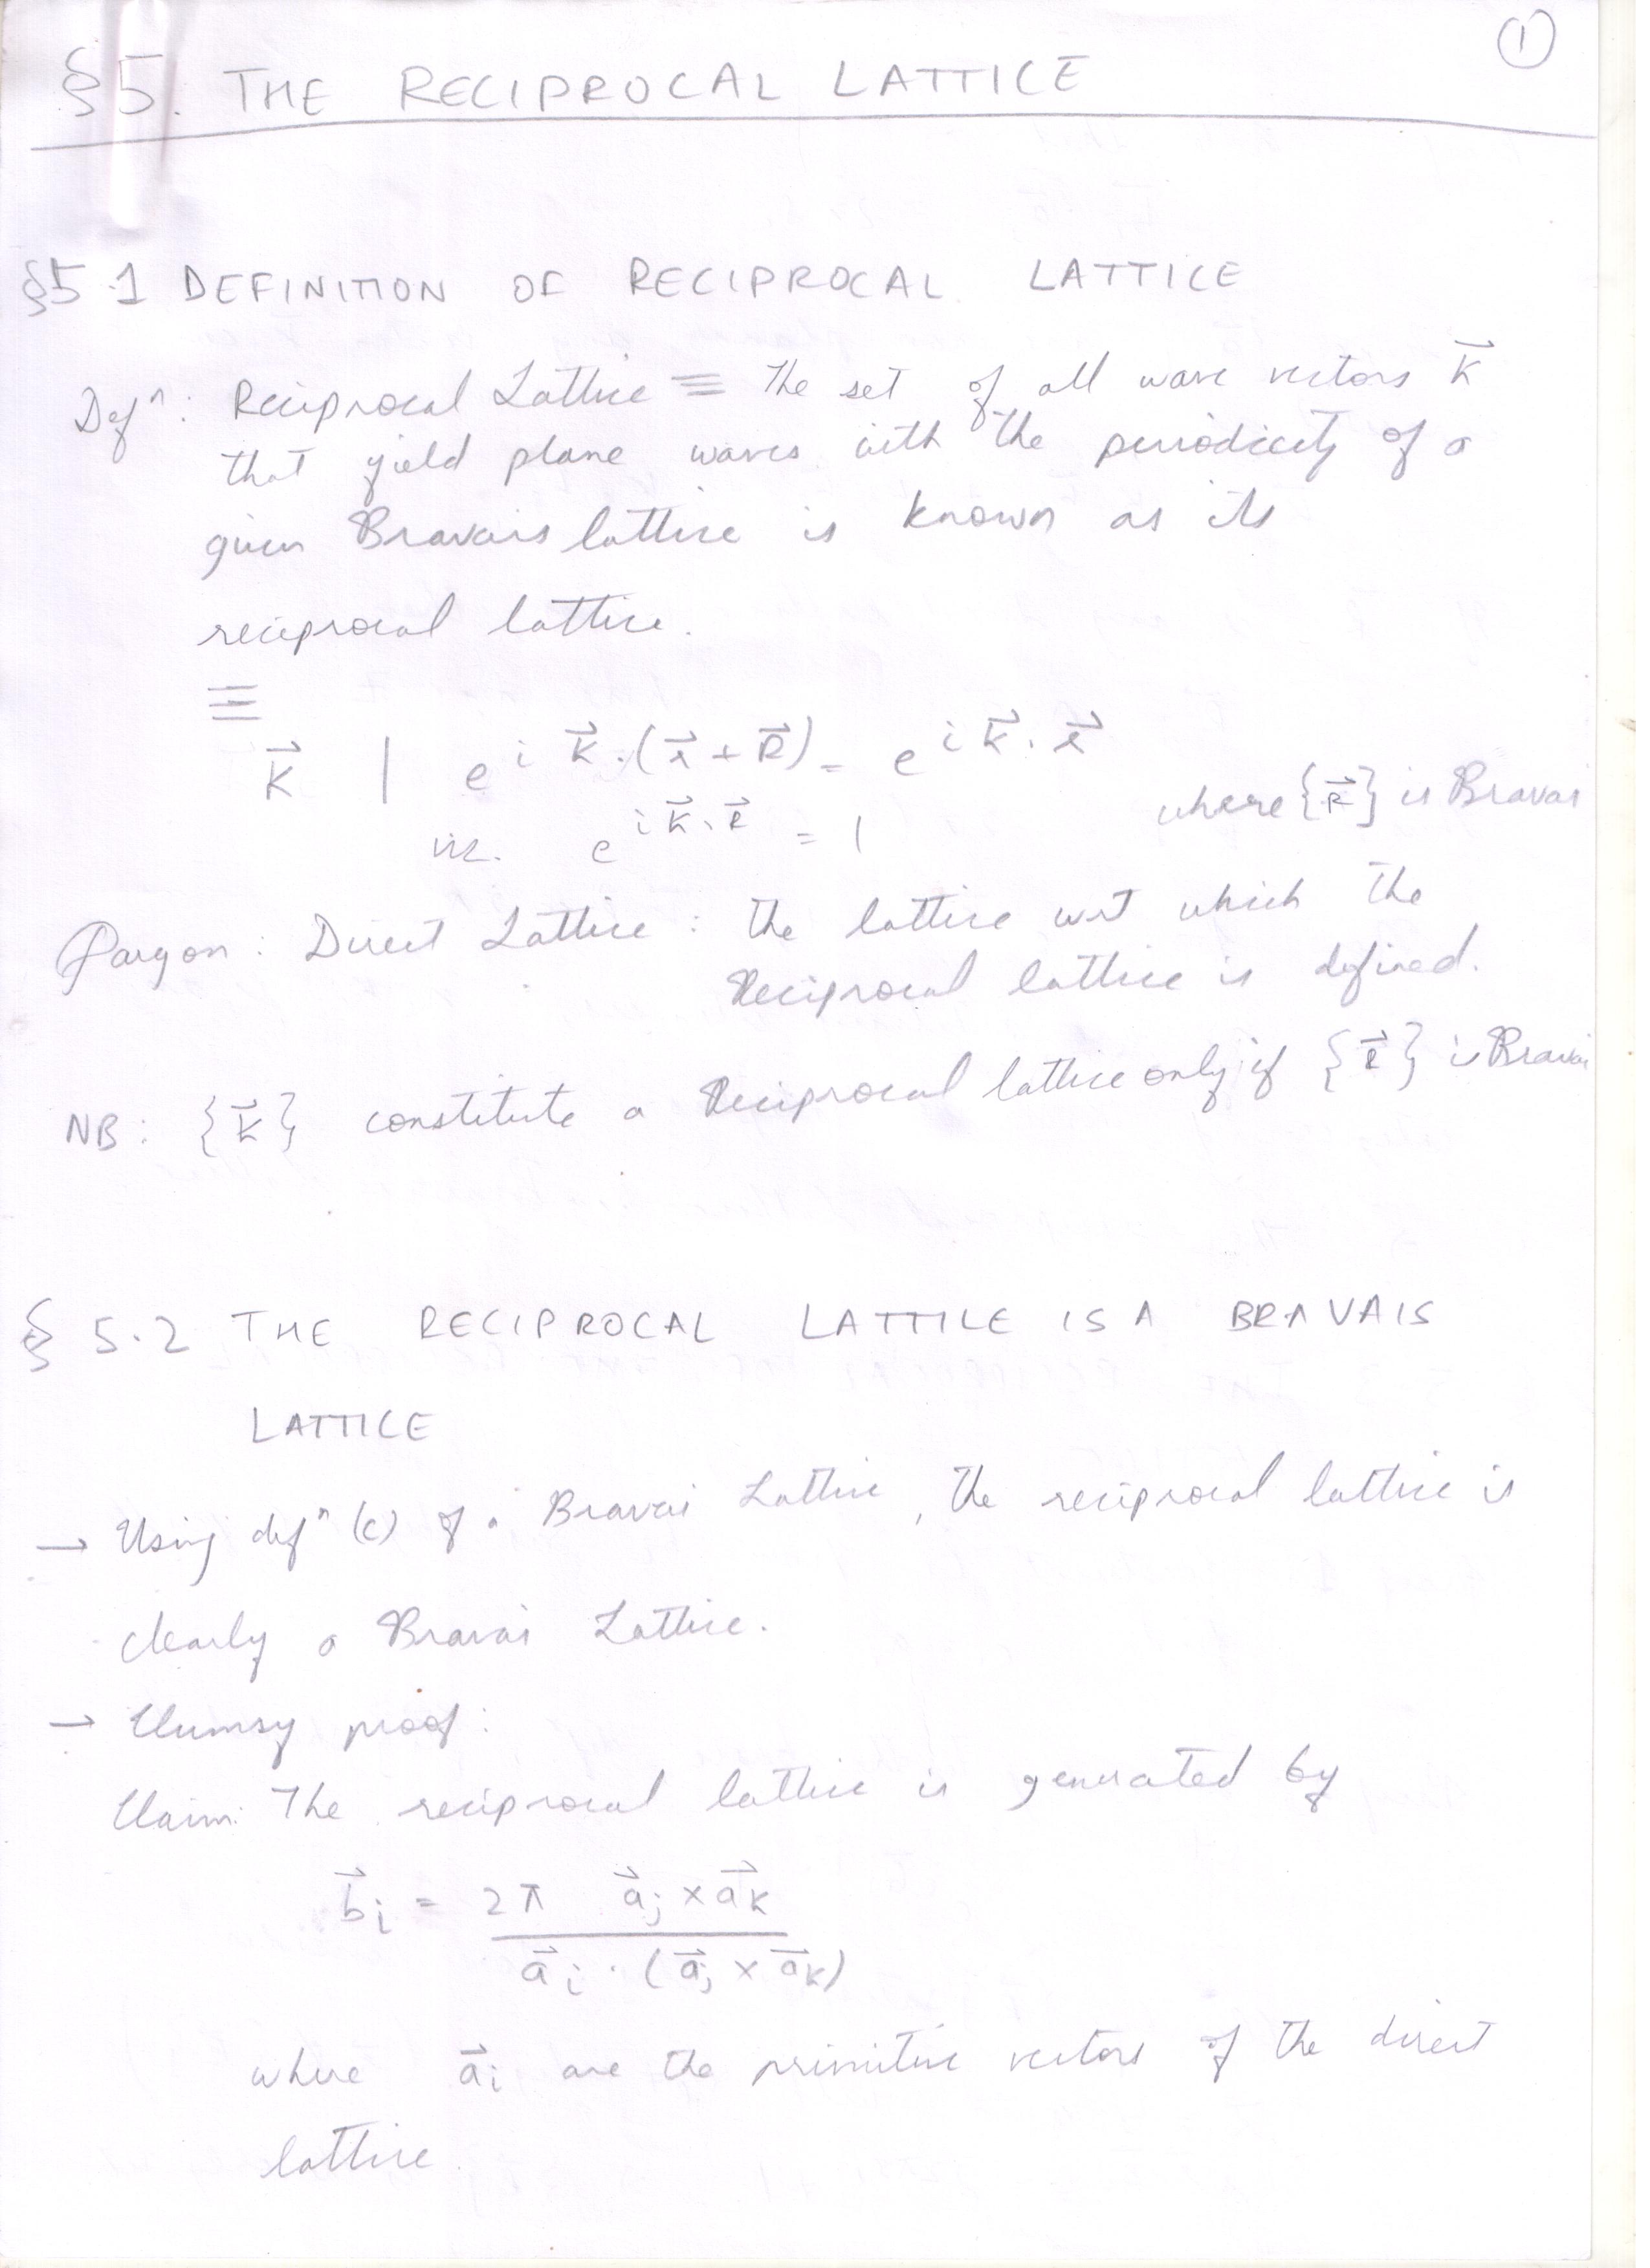 ①
§5. THE RECIPROCAL LATTICE
§5.1 DEFINITION OF RECIPROCAL LATTICE
Defⁿ: Reciprocal Lattice ≡ The set of all wave vectors K⃗
that yield plane waves with the periodicity of a
given Bravais lattice is known as its
reciprocal lattice.
≡
K⃗ | e^{i K⃗·(r⃗+R⃗)} = e^{i K⃗·r⃗}
where {R⃗} is Bravai
viz. e^{i K⃗·R⃗} = 1
Jargon: Direct Lattice: The lattice wrt which the
Reciprocal lattice is defined.
NB: {K⃗} constitute a Reciprocal lattice only if {R⃗} is Bravai
§ 5.2 THE RECIPROCAL LATTICE IS A BRAVAIS
LATTICE
→ Using defⁿ (c) of a Bravai Lattice, the reciprocal lattice is
clearly a Bravai Lattice.
→ Clumsy proof:
Claim: The reciprocal lattice is generated by
b⃗i = 2π a⃗j × a⃗k
a⃗i · (a⃗j × a⃗k)
where a⃗i are the primitive vectors of the direct
lattice.